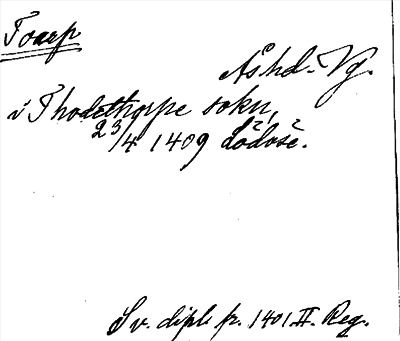 Torp
Åshd. Vg.
i Thodethorpe sokn,
23/4 1409 Lödöse.
Sv. dipl. fr. 1401 II. Reg.